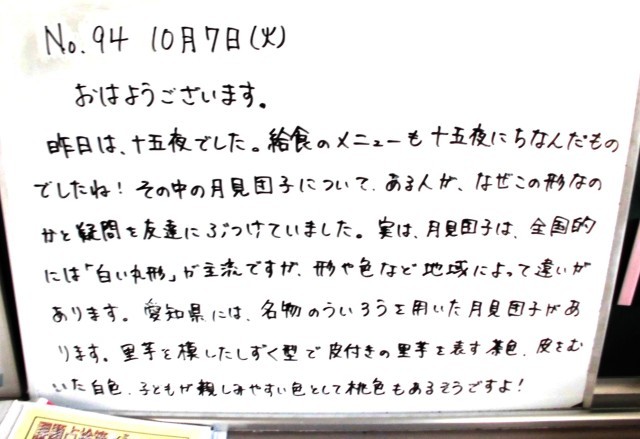 No.94 10月7日(火)
おはようございます。
昨日は、十五夜でした。給食のメニューも十五夜にちなんだもの
でしたね！その中の月見団子について、ある人が、なぜこの形なの
かと疑問を友達にぶつけていました。実は、月見団子は、全国的
には「白い丸形」が主流ですが、形や色など地域によって違いが
あります。愛知県には、名物のういろうを用いた月見団子があ
ります。里芋を模したしずく型で皮付きの里芋を表す茶色、皮をむ
いた白色、子どもが親しみやすい色として桃色もあるそうですよ！